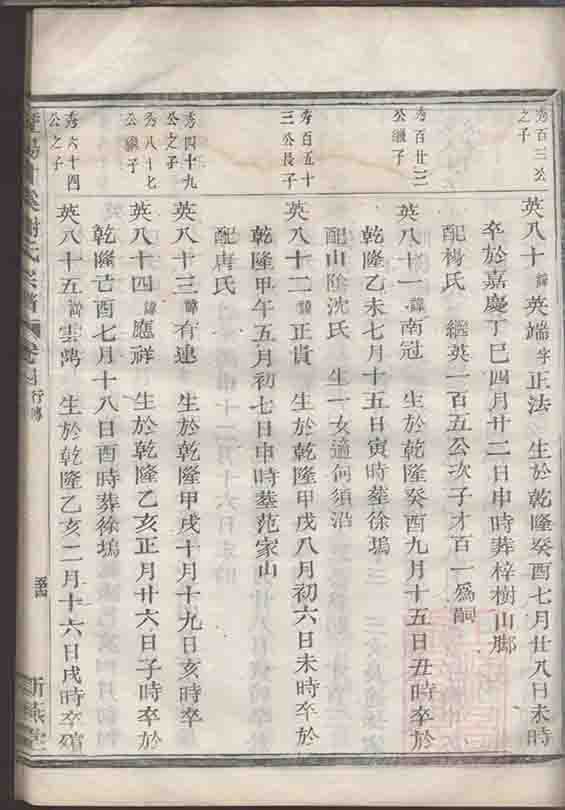 秀百三公
之子
英八十 諱英端字正法 生於乾隆癸酉七月廿八日未時
卒於嘉慶丁巳四月廿二日申時葬梓樹山脚
配楊氏 繼英一百五公次子才百一為嗣
秀百廿三
公繼子
英八十一 諱南冠 生於乾隆癸酉九月十五日丑時卒於
乾隆乙未七月十五日寅時葬徐塢
配山陰沈氏 生一女適何須沿
秀百五十
三公長子
英八十二 諱正貴 生於乾隆甲戌八月初六日未時卒於
乾隆甲午五月初七日申時墓范家山
配唐氏
秀四十九
公之子
英八十三 諱有連 生於乾隆甲戌十月十九日亥時卒
秀八十七
公繼子
英八十四 諱應祥 生於乾隆乙亥正月廿六日子時卒於
乾隆亡酉七月十八日酉時葬徐塢
秀六十四
公之子
英八十五 諱雲鴻 生於乾隆乙亥二月十六日戌時卒殯
氏宗譜 卷 行傳